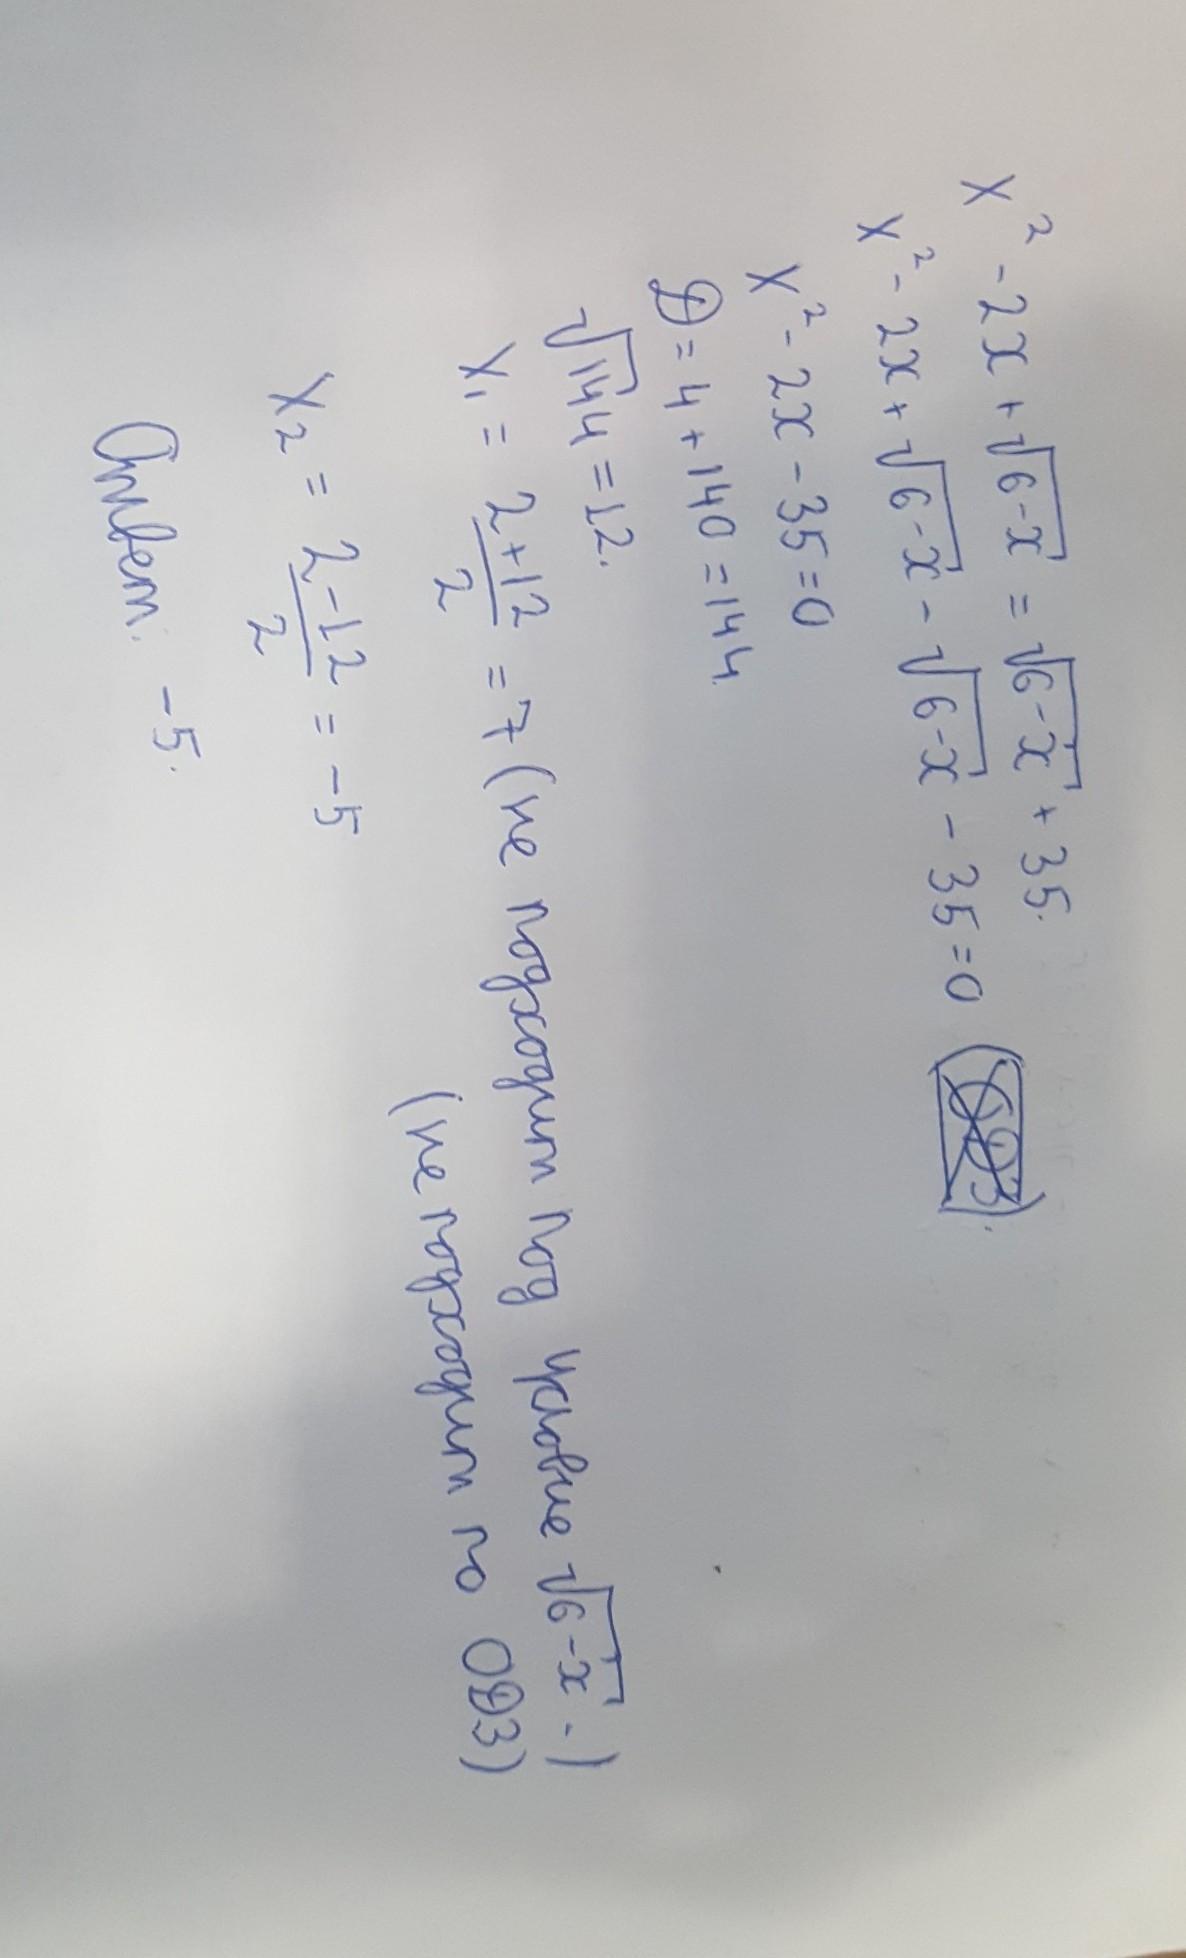 x² - 2x + √6-x = √6-x + 35.
x² - 2x + √6-x - √6-x - 35 = 0
x² - 2x - 35 = 0
D = 4 + 140 = 144.
√144 = 12.
x₁ = (2+12)/2 = 7 (не подходит под условие √6-x.)
(не подходит по ОДЗ)
x₂ = (2-12)/2 = -5
Ответ: -5.